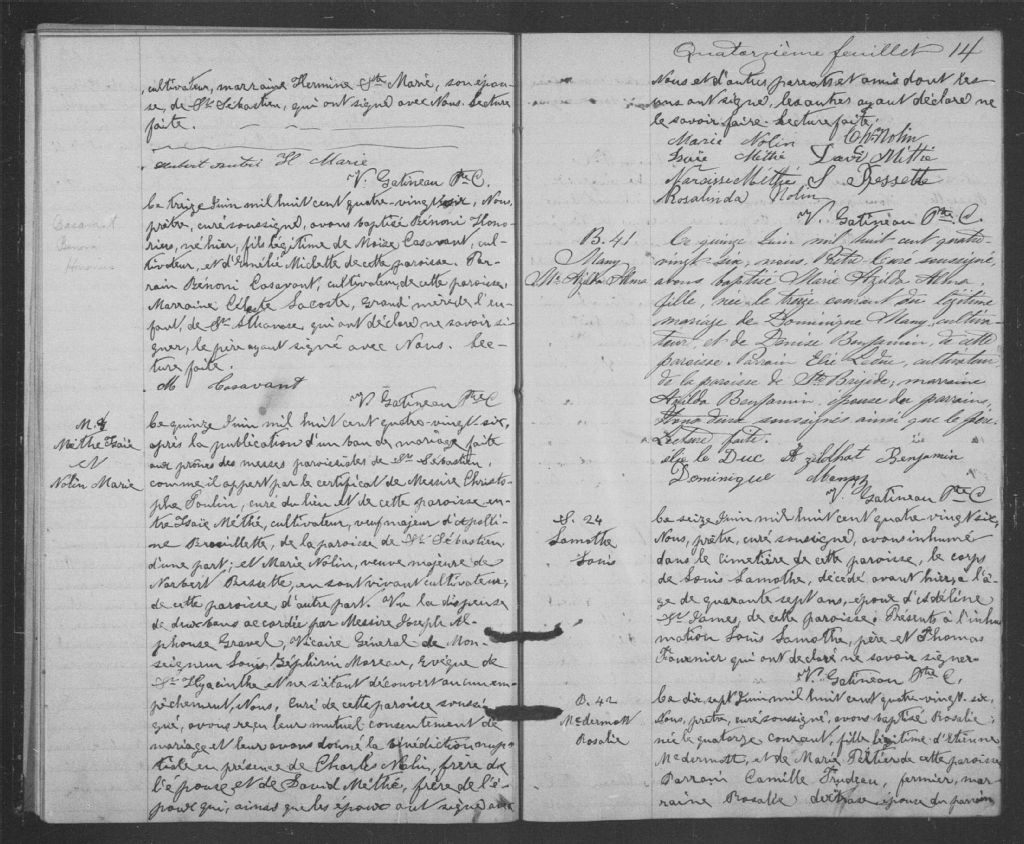 cultivateur, marraine Hermine Ste Marie, son épou-
se, de St. Sébastien, qui ont signé avec Nous. Lecture
faite.
H Marie
V. Gatineau Ptre C.
Casavant
Bénoni
Honorius
Le treize Juin mil huit cent quatre-vingt six, Nous,
prêtre, curé soussigné, avons baptisé Bénoni Hono-
rius, né hier, fils légitime de Moïse Casavant, cul-
tivateur, et d'Amélie Miclette de cette paroisse. Par-
rain Bénoni Casavant, cultivateur, de cette paroisse,
Marraine Céleste Lacoste, grand'mère de l'en-
fant, de St. Athanase, qui ont déclaré ne savoir si-
gner, le père ayant signé avec Nous. Lec-
ture faite.
M Casavant
V. Gatineau Ptre C
M.
Méthé Isaïe
et
Nolin Marie
Le quinze Juin mil huit cent quatre-vingt six,
après la publication d'un ban de mariage faite
aux prônes des messes paroissiales de St. Sébastien,
comme il appert par le certificat de Messire Christo-
phe Poulin, curé du lieu et de cette paroisse, en-
tre Isaïe Méthé, cultivateur, veuf majeur d'Apolli-
ne Brouillette, de la paroisse de St. Sébastien
d'une part; et Marie Nolin, veuve majeure de
Norbert Bessette, en son vivant cultivateur,
de cette paroisse, d'autre part. Vu la dispense
de deux bans accordée par Messire Joseph Al-
phonse Gravel, Vicaire Général de Mon-
seigneur Louis Zéphirin Moreau, Evêque de
St. Hyacinthe et ne s'étant découvert aucun em-
pêchement, Nous, Curé de cette paroisse soussi-
gné, avons reçu leur mutuel consentement de
mariage et leur avons donné la bénédiction nup-
tiale en présence de Charles Nolin, frère de
l'épouse et de David Méthé, frère de l'é-
poux qui, ainsi que les époux ont signé avec
Quatorzième feuillet 14
Nous et d'autres parents et amis dont les
uns ont signé, les autres ayant déclaré ne
le savoir faire. Lecture faite.
Marie Nolin Chs Nolin
Isaïe Méthé David Méthé
Narcisse Méthé S Bessette
Rosalinda Nolin
V. Gatineau Ptre C.
B. 41
Many
Mie Azilda Alma
Le quinze Juin mil huit cent quatre-
vingt-six, nous, Prêtre Curé soussigné,
avons baptisé Marie Azilda Alma,
fille, née le treize courant du légitime
mariage de Dominique Many, cultiva-
teur, et de Denise Benjamin, de cette
paroisse. Parrain Elie Leduc, cultivateur,
de la paroisse de Ste Brigide; marraine
Azilda Benjamin, épouse du parrain,
soussignés ainsi que le père.
Lecture faite.
elie le Duc Benjamin
Dominique Many
V. Gatineau Ptre C
S. 24
Lamothe
Louis
Le seize Juin mil huit cent quatre vingt six,
Nous, prêtre, curé soussigné, avons inhumé
dans le cimetière de cette paroisse, le corps
de Louis Lamothe, décédé avant hier, à l'â-
ge de quarante sept ans, époux d'Adéline
St. James, de cette paroisse. Présents à l'inhu-
mation Louis Lamothe, père et Thomas
Fournier qui ont déclaré ne savoir signer
V. Gatineau Ptre C.
B. 42
McDermott
Rosalie
Le dix sept Juin mil huit cent quatre-vingt six,
Nous, prêtre, curé soussigné, avons baptisé Rosalie
née le quatorze courant, fille légitime d'Etienne
McDermott, et de Marie Peltier de cette paroisse
Parrain Camille Trudeau, fermier, mar-
raine Rosalie épouse du parrain